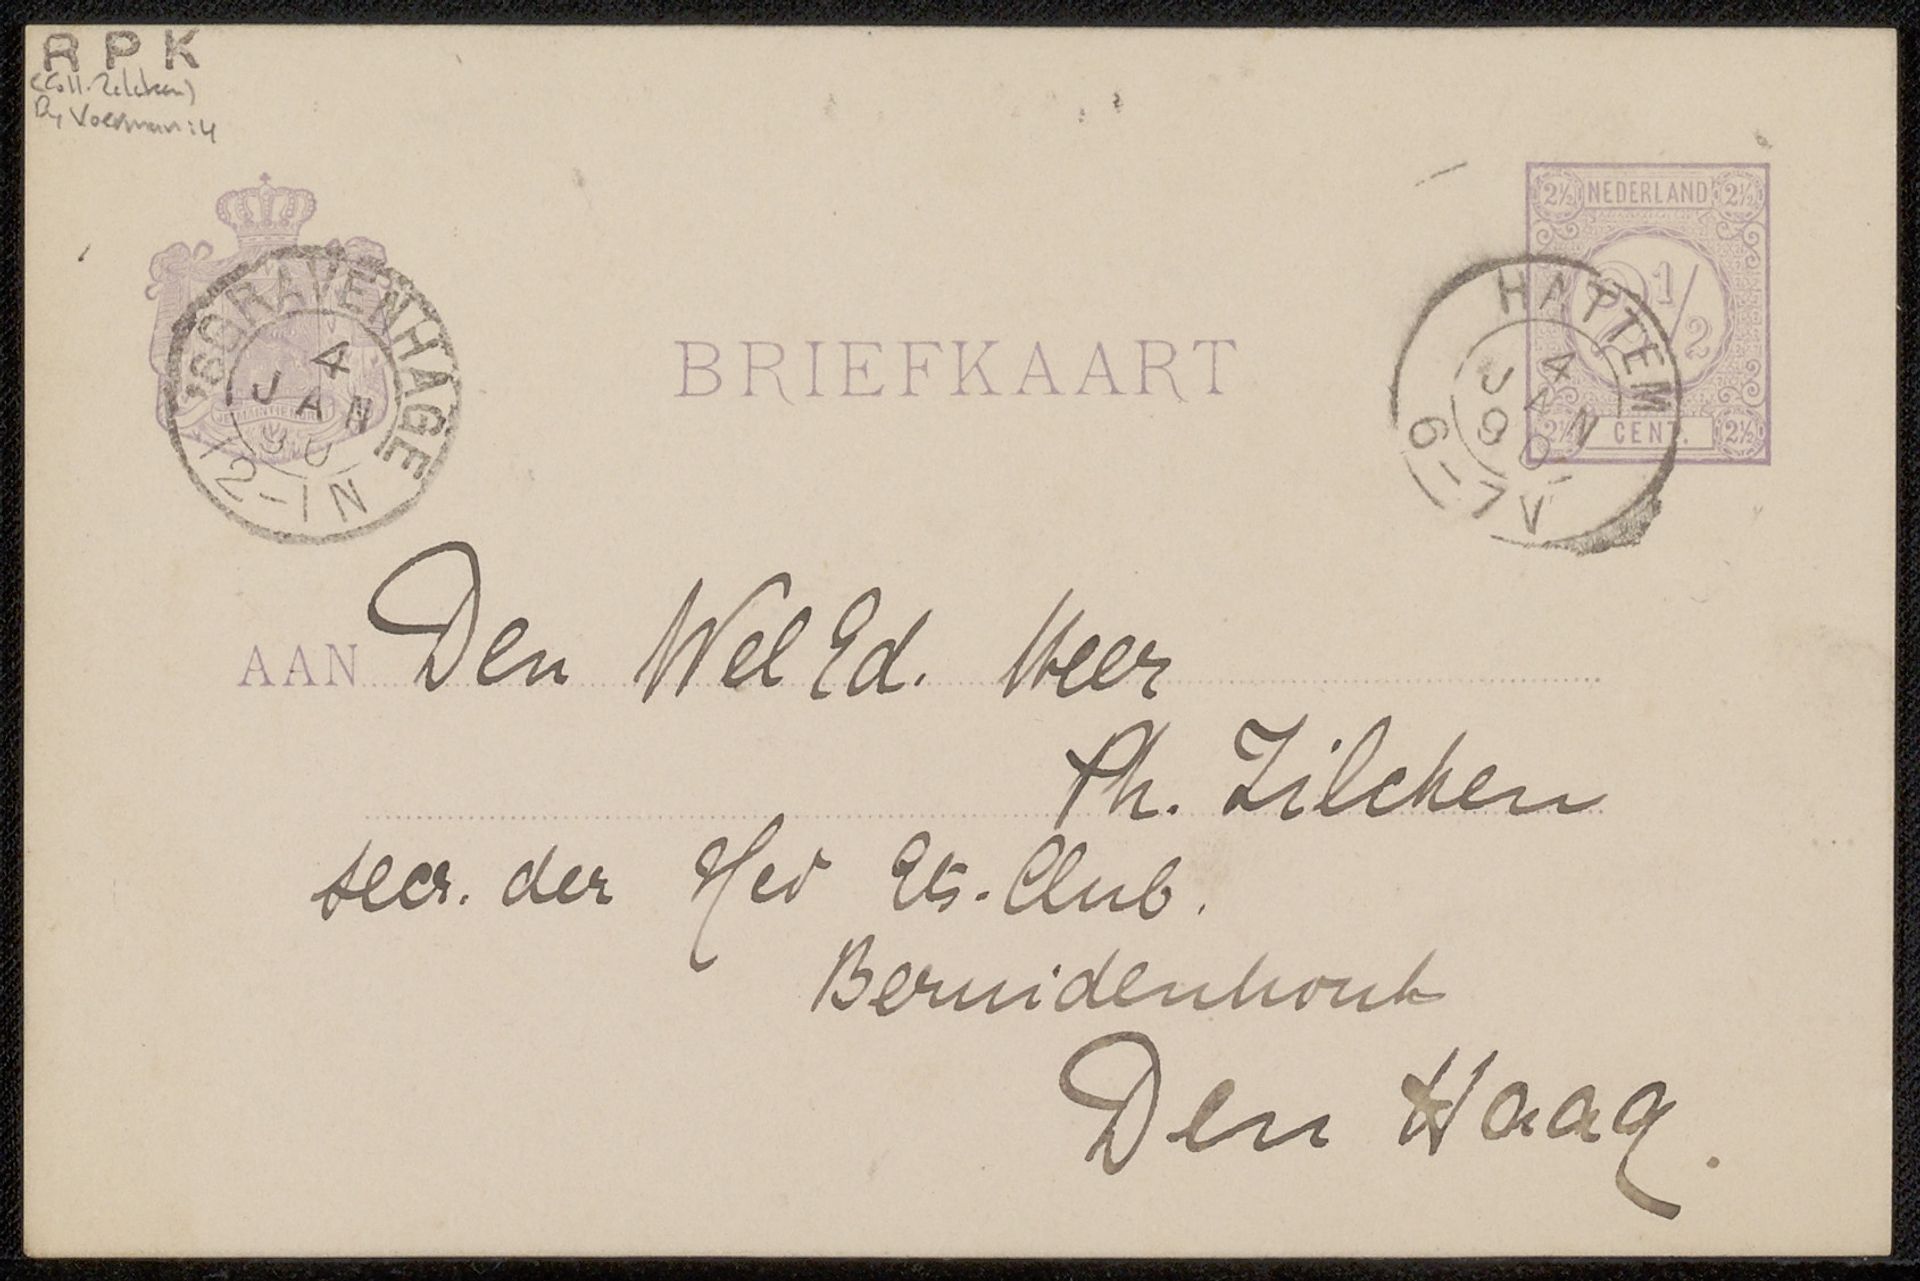 RPK
(Coll. Zilcken)
By Voerman: 4
NEDERLAND
2½ 2½
2½
2½ CENT. 2½
'SGRAVENHAGE
4
JAN
90
12-1N
JE MAINTIENDRAI
HATTEM
4
JAN
90
6-7V
BRIEFKAART
AAN Den Wel Ed. Heer
Ph. Zilcken
secr. der Ned Ets-Club.
Bezuidenhout
Den Haag.